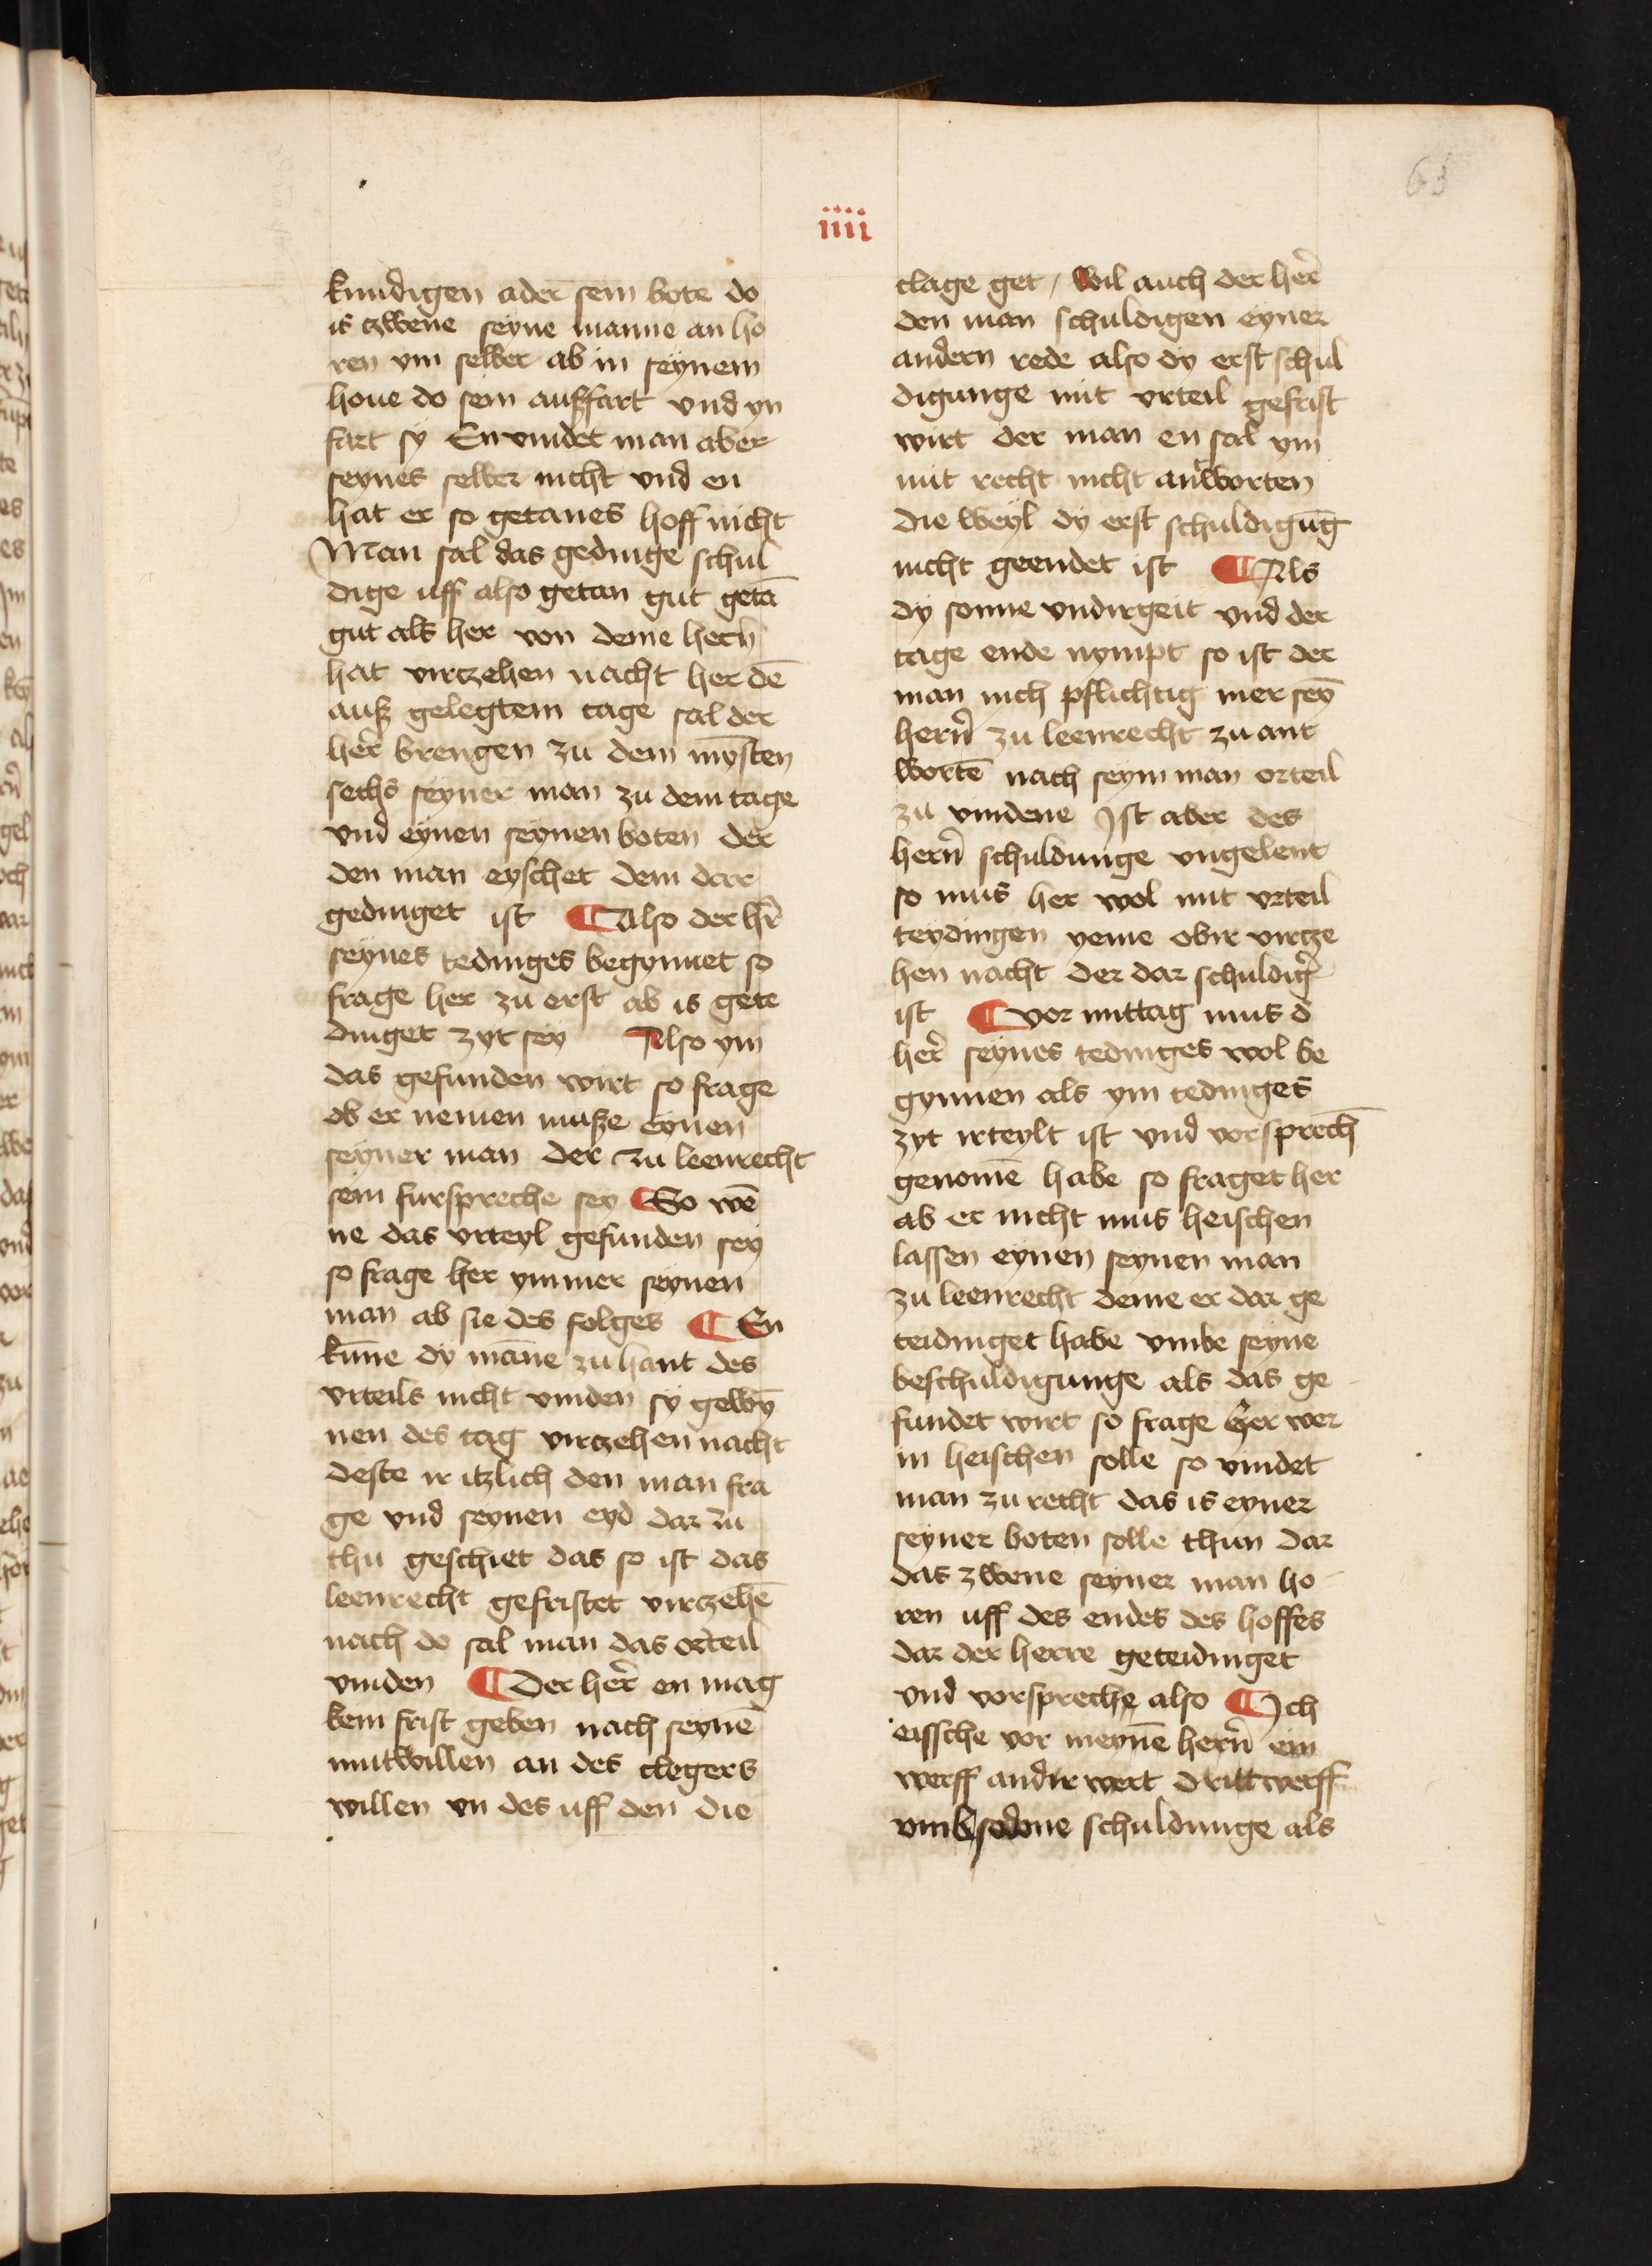 63
iiii
kundigen ader sein bote do
is tzwene seyne manne an ho
ren ym selber ab in seynem
houe do sein außfart vnd yn
fart sy En vindet man aber
seynes selber nicht vnd en
hat er so getanes hoff nicht
Man sal das gedinge schul
dige uff also getan gut getā
gut als her von deme herñ
hat virczehen nacht her dē
auß gelegtem tage sal der
her̄ brengen zu dem mȳsten
sechs seyner man zu dem tage
vnd eynen seynen boten der
den man eyschet dem dar
gedinget ist ¶ Also der hr̄
seynes tedinges begynnet so
frage her zu erst ab is gete
dinget zyt sey Also ym
das gefunden wirt so frage
ob er nemen muße eynen
seyner man der zu leenrecht
sein furspreche sey ¶ So wē
ne das vrteyl gefunden sey
so frage her ymmer seynen
man ab sie des folges ¶ En
kūne dy māne zu hant des
vrteils nicht vinden sy gewȳ
nen des tag virczehen nacht
deste ir itzlich den man fra
ge vnd seynen eyd dar zu
thu geschiet das so ist das
leenrecht gefristet virczehē
nach do sal man das orteil
vinden ¶ Der her̄ en mag
kein frist geben nach seynē
mutwillen an des clegers
willen vn des uff den die
clage get / Wil auch der her̄
den man schuldigen eyner
andern rede also dy erst schul
digunge mit vrteil gefrist
wirt der man en sal ym
mit recht nicht antworten
die weyl dy erst schuldigūg
nicht geendet ist ¶ Als
dy sonne vndirgeit vnd der
tage ende nympt so ist der
man nich pflichtig mer seȳ
herñ zu leenrecht zu ant
wortē nach seym man orteil
zu vindene Ist aber des
herñ schuldunge vngelent
so mus her wol mit vrteil
teydingen yeme obir virtze
hen nacht der dar schuldig̃
ist ¶ vor mittag mus d̄
her̄ seynes tedinges wol be
gynnen als ym tedinges
zyt irteylt ist vnd vorsprech̄
genomē habe so fraget her
ab er nicht mus heischen
lassen eynen seynen man
zu leenrecht deme er dar ge
teidinget habe vmbe seyne
beschuldigunge als das ge
fundet wirt so frage her wer
in heischen solle so vindet
man zu recht das is eyner
seyner boten solle thun dar
das zwene seyner man ho
ren uff des endes des hoffes
dar der herre geteidinget
vnd vorspreche also ¶ Ich
eissche vor meynē herñ ein
werff andir wert dritt werff
vmb sodone schuldunge als